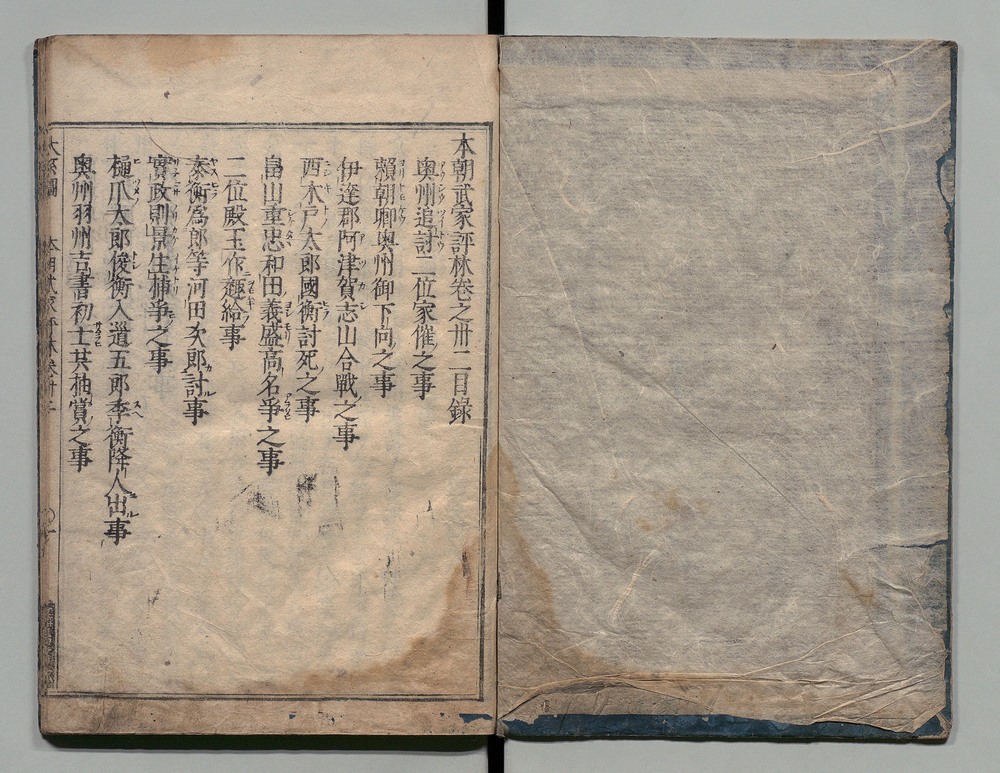 本朝武家評林卷之卅二目録
奥州追討二位家催之事
賴朝卿奥州御下向之事
伊達郡阿津賀志山合戰之事
西木戸太郎國衡討死之事
畠山重忠和田義盛高名爭之事
二位殿玉作趣給事
泰衡爲郎等河田次郎討事
實政則景生捕爭之事
樋爪太郎俊衡入道五郎季衡降人出事
奥州羽州吉書初士共抽賞之事
大系圖 本朝武家評林卷卅二 〇一